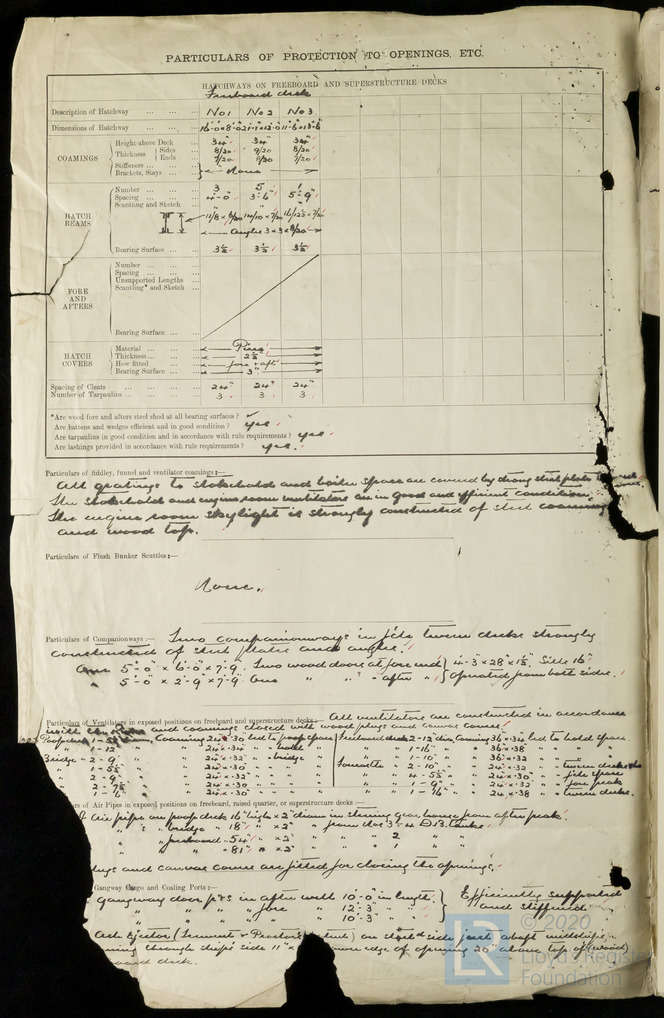 PARTICULARS OF PROTECTION TO OPENINGS, ETC.
HATCHWAYS ON FREEBOARD AND SUPERSTRUCTURE DECKS
Freeboard deck
Description of Hatchway ... ... ... No 1 No 2 No 3
Dimensions of Hatchway ... ... ...
COAMINGS
Height above Deck ... 34" 34" 34"
Thickness Sides 8/20 9/20 8/20
Ends 7/20 8/20 7/20
Stiffeners ... ... ...
Brackets, Stays ... ... None
HATCH BEAMS
Number ... ... ... 3 5 1
Spacing ... ... ... 4-0" 3-6" 5-9"
Scantling and Sketch
Angles 3 x 3 x 8/20
Bearing Surface ... ... 3½ 3½ 3½
FORE AND AFTERS
Number ... ... ...
Spacing ... ... ...
Unsupported Lengths
Scantling* and Sketch ...
Bearing Surface ... ...
HATCH COVERS
Material ... ... ... Pine
Thickness... ... ... 2½
How fitted ... ... fore & aft
Bearing Surface ... ... 3"
Spacing of Cleats ... ... ... 24" 24" 24"
Number of Tarpaulins ... ... ... 3 3 3
*Are wood fore and afters steel shod at all bearing surfaces ?
Are battens and wedges efficient and in good condition ? yes
Are tarpaulins in good condition and in accordance with rule requirements ? yes
Are lashings provided in accordance with rule requirements ? yes.
Particulars of fiddley, funnel and ventilator coamings :—
All gratings to stokehold and boiler space are covered by strong steel plate
The stokehold and engine room ventilators are in good and efficient condition.
The engine room skylight is strongly constructed of steel coaming
and wood top.
Particulars of Flush Bunker Scuttles :—
None.
Particulars of Companionways :— Two companionways in tween decks strongly
constructed of steel plates and angles.
One 5'-0" x 6'-0" x 7'-9". Two wood doors at fore end } 4'-3 x 28" x 1½. Sills 16"
" 5'-0" x 2'-9" x 7'-9" One " " " after " } operated from both sides.
Particulars of Ventilators in exposed positions on freeboard and superstructure decks:— All ventilators are constructed in accordance
with and coamings closed with wood plugs and canvas covers.
Coaming 24 x .30 led to poop space Freeboard deck 2-12 dia, Coaming 36 x .34 led to hold space.
1-12 " " 24 x .34 " " hold " " 1-16" " 36 x .38 " "
Bridge " 2-9" " 24 x .32 " " bridge " " 1-10" " 36 x .32 " "
" 24 x .30 " " " 2-10" " 24 x .32 " " tween decks
" 2-9" " 24 x .32 " " "
" 24 x .30 " " " " 24 x .32 " fore peak
" 24 x .30 " " " " 24 x .38 " tween decks.
of Air Pipes in exposed positions on freeboard, raised quarter, or superstructure decks :—
Air pipes on poop deck 16" high x 2" diam in steering gear house from after peak.
" " bridge " 18" " x 2" " from Nos 3 & 4 D.B. tanks
" " freeboard " 54" " x 2" " " 2
" " " 81" " x 2" " " 1 "
and canvas covers are fitted for closing the openings.
Gangway Cargo and Coaling Ports :—
gangway door p&s in after well 10'-0 in length. } Efficiently supported
" " " fore " 12'-3 " } and stiffened
" " " " 10'-3" }
Ash Ejector on side just abaft midships
through ships side 11" x edge of opening 20" above top of (wood)
deck.
LR
© 2020
Lloyd's Register
Foundation